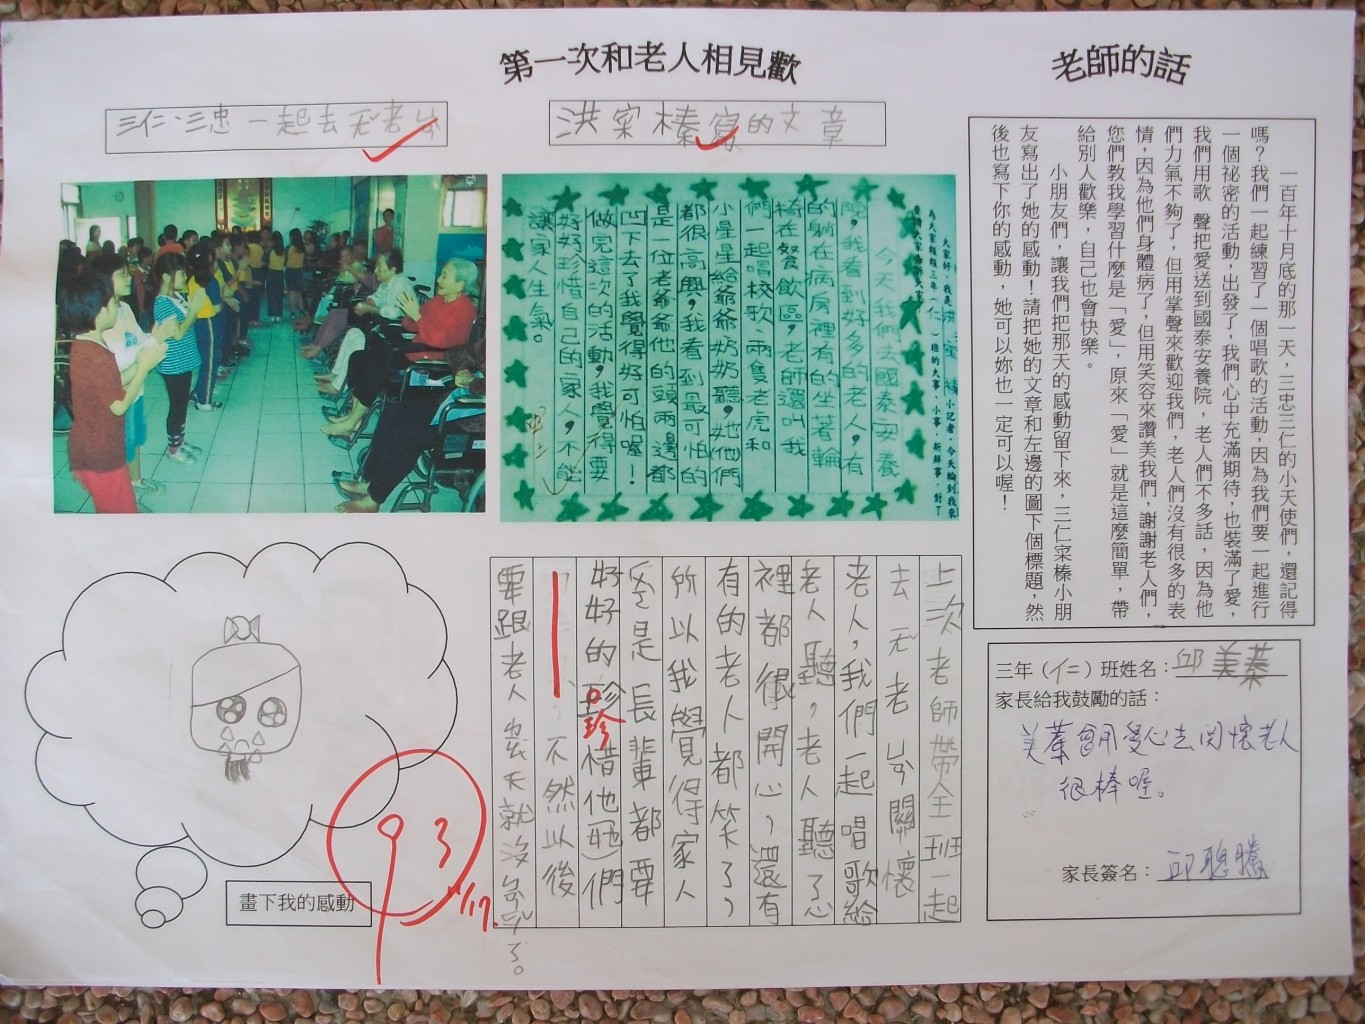 第一次和老人相見歡
老師的話
三仁、三忠一起去
洪寀榛寫的文章
一百年十月底的那一天，三忠三仁的小天使們，還記得
嗎？我們一起練習了一個唱歌的活動，因為我們要一起進行
一個祕密的活動，出發了，我們心中充滿期待，也裝滿了愛，
我們用歌 聲把愛送到國泰安養院，老人們不多話，因為他
們力氣不夠了，但用掌聲來歡迎我們，老人們沒有很多的表
情，因為他們身體病了，但用笑容來讚美我們，謝謝老人們，
您們教我學習什麼是「愛」，原來「愛」就是這麼簡單，帶
給別人歡樂，自己也會快樂。
小朋友們，讓我們把那天的感動留下來，三仁寀榛小朋
友寫出了她的感動！請把她的文章和左邊的圖下個標題，然
後也寫下你的感動，她可以妳也一定可以喔！
大家好，我是洪寀榛小記者，今天輪到我來
為大家報報三年（仁）班的大事、小事、新鮮事，對了
今天我們去國泰安養
院，我看到好多的老人，有
的躺在病房裡有的坐著輪
椅在餐飲區，老師還叫我
們一起唱校歌、兩隻老虎和
小星星給爺爺奶奶聽，她們
都很高興，我看到最可怕的
是一位老爺爺他的頭兩邊都
凹下去了我覺得好可怕喔！
做完這次的活動，我覺得要
好好珍惜自己的家人，不能
讓家人生氣。
上次老師帶全班一起
去 關懷
老人，我們一起唱歌給
老人聽，老人聽了心
裡都很開心，還有
有的老人都笑了，
所以我覺得家人
或是長輩都要
好好的珍惜他(她)們
珍
，不然以後
要跟老人 就沒 了。
三年（仁）班姓名：邱美蓁
家長給我鼓勵的話：
美蓁會用愛心去関懷老人
很棒喔。
家長簽名：邱聰騰
畫下我的感動
93
11/17.